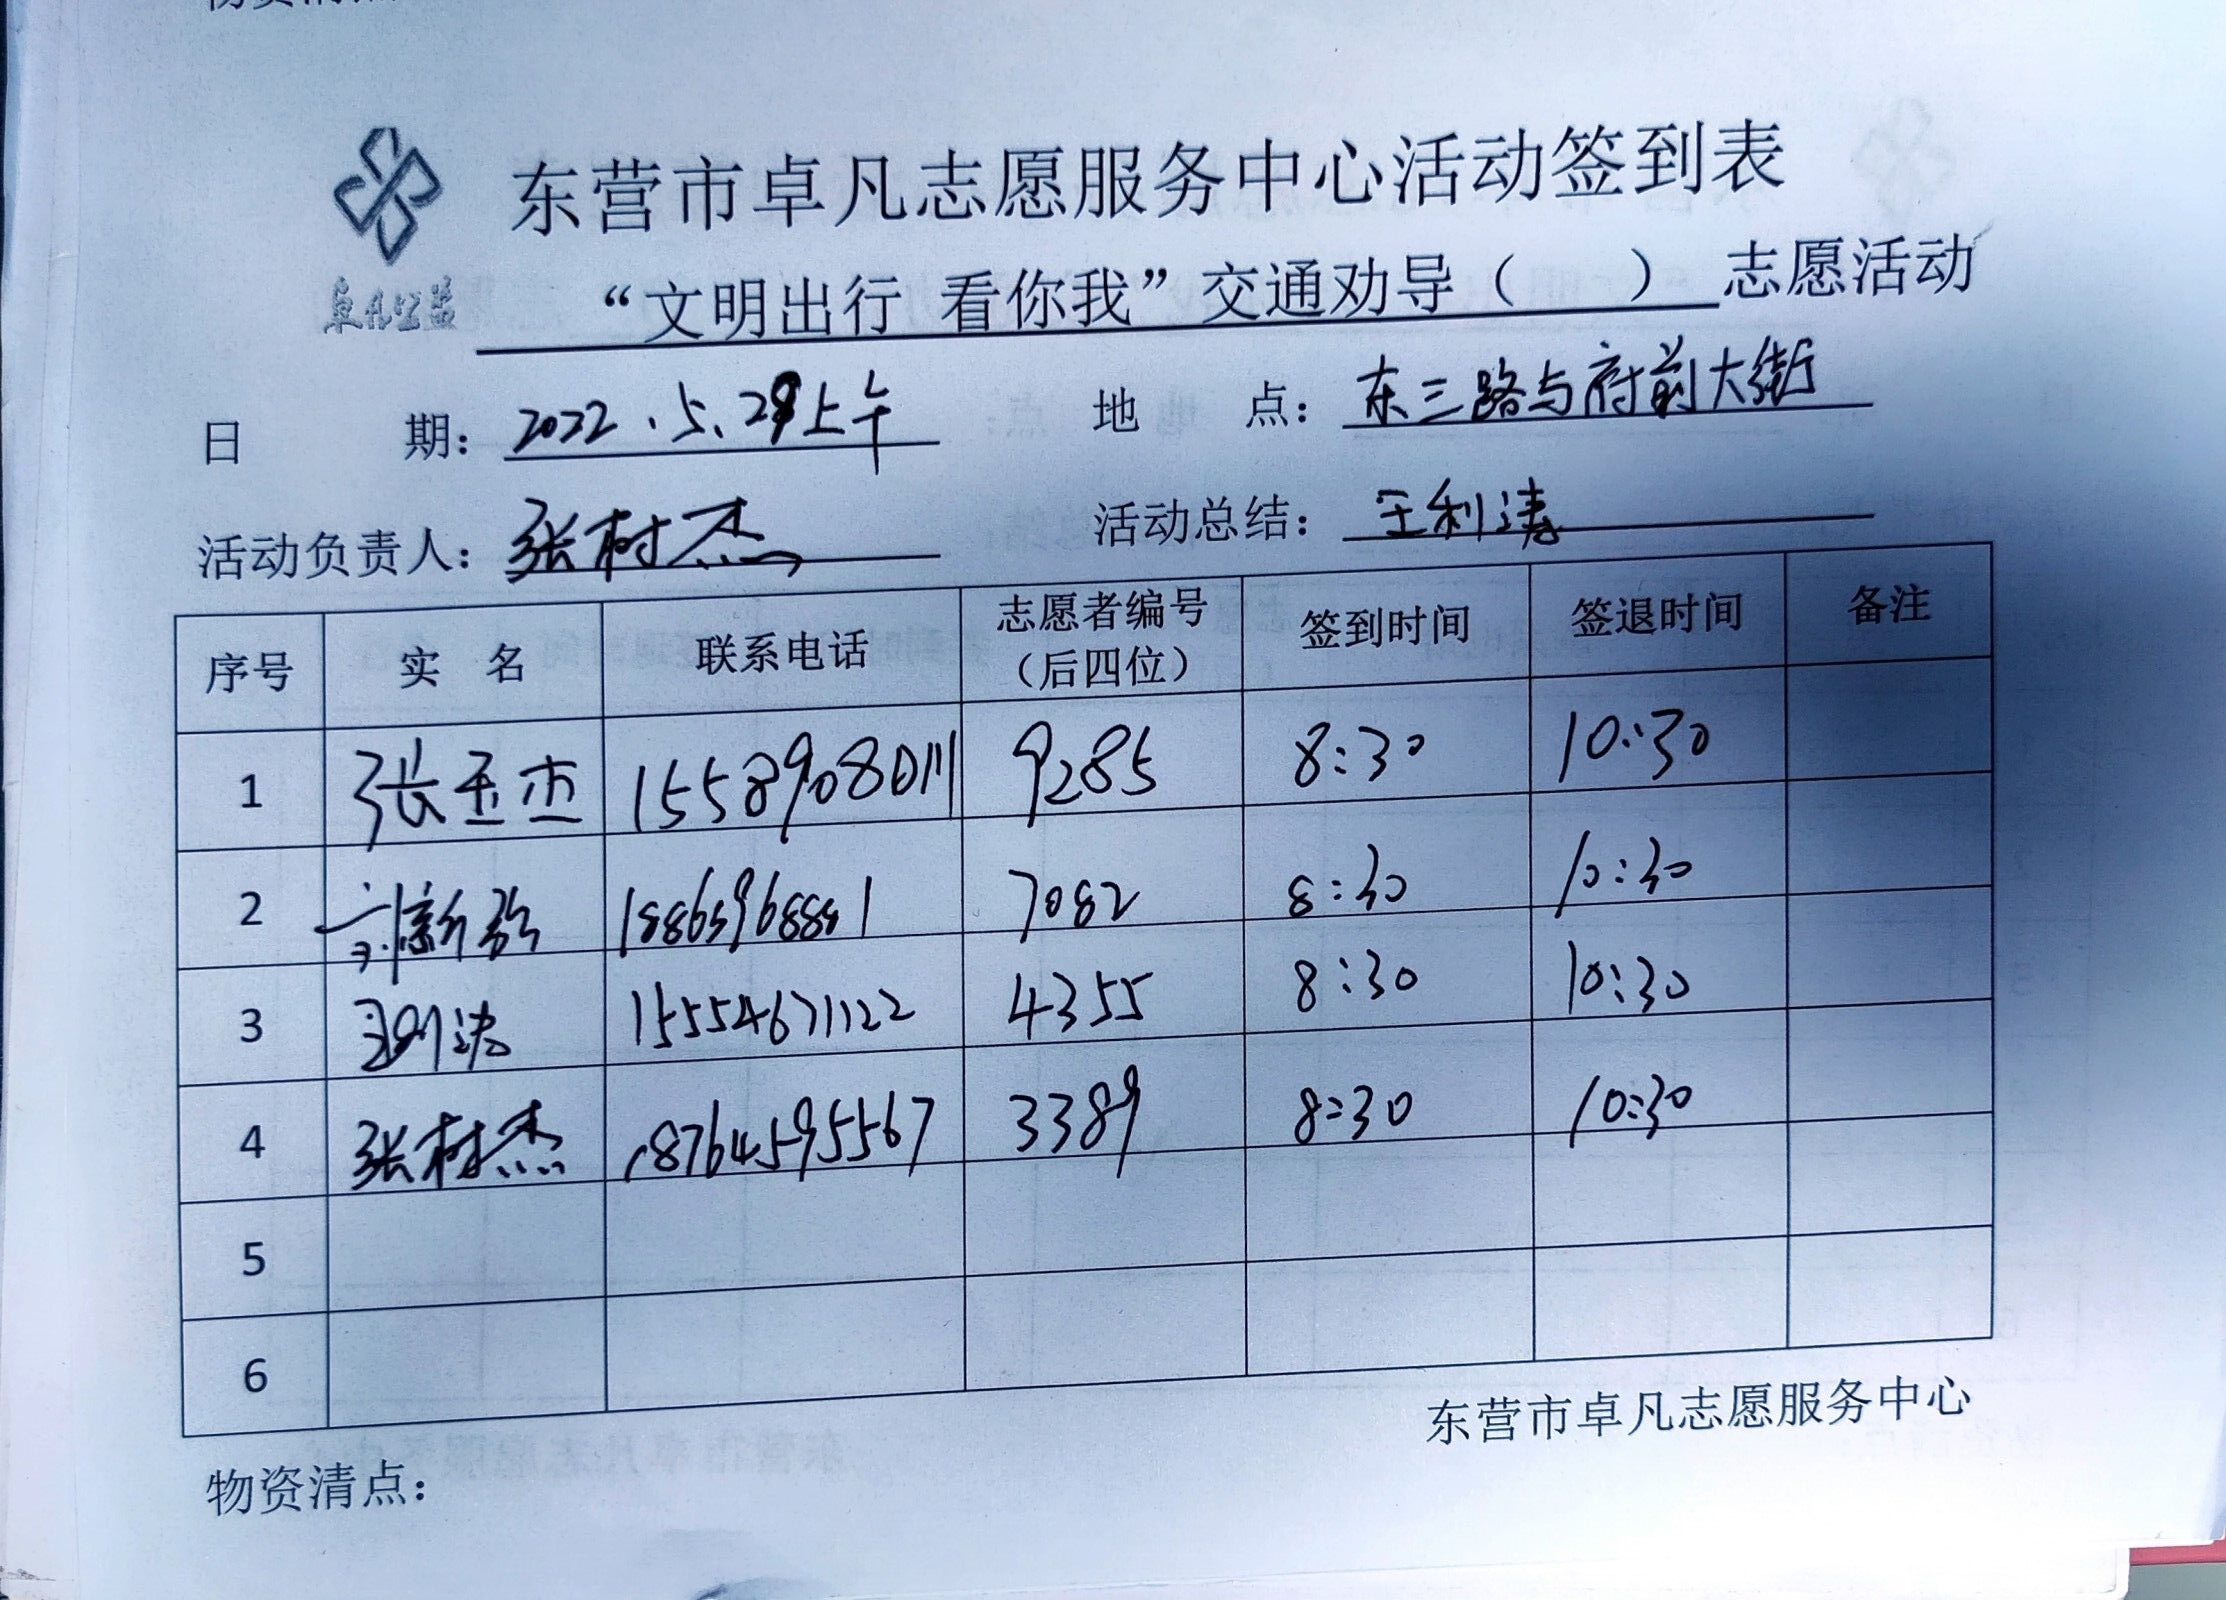 卓凡公益
东营市卓凡志愿服务中心活动签到表
“文明出行 看你我”交通劝导（ ）志愿活动
日 期：2022.5.29上午 地 点：东三路与府前大街
活动负责人：张树杰 活动总结：王利涛
序号 实 名 联系电话 志愿者编号（后四位） 签到时间 签退时间 备注
1 张玉杰 15589080111 9285 8:30 10:30
2 18865968881 7082 8:30 10:30
3 15554671122 4355 8:30 10:30
4 张树杰 18764595567 3389 8:30 10:30
5
6
东营市卓凡志愿服务中心
物资清点：